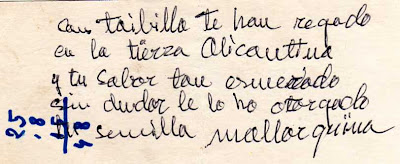 con taibilla te han regado
en la tierra Alicantina
y tu sabor tan esmerado
sin dudar te lo ha otorgado
semilla mallorquina
25